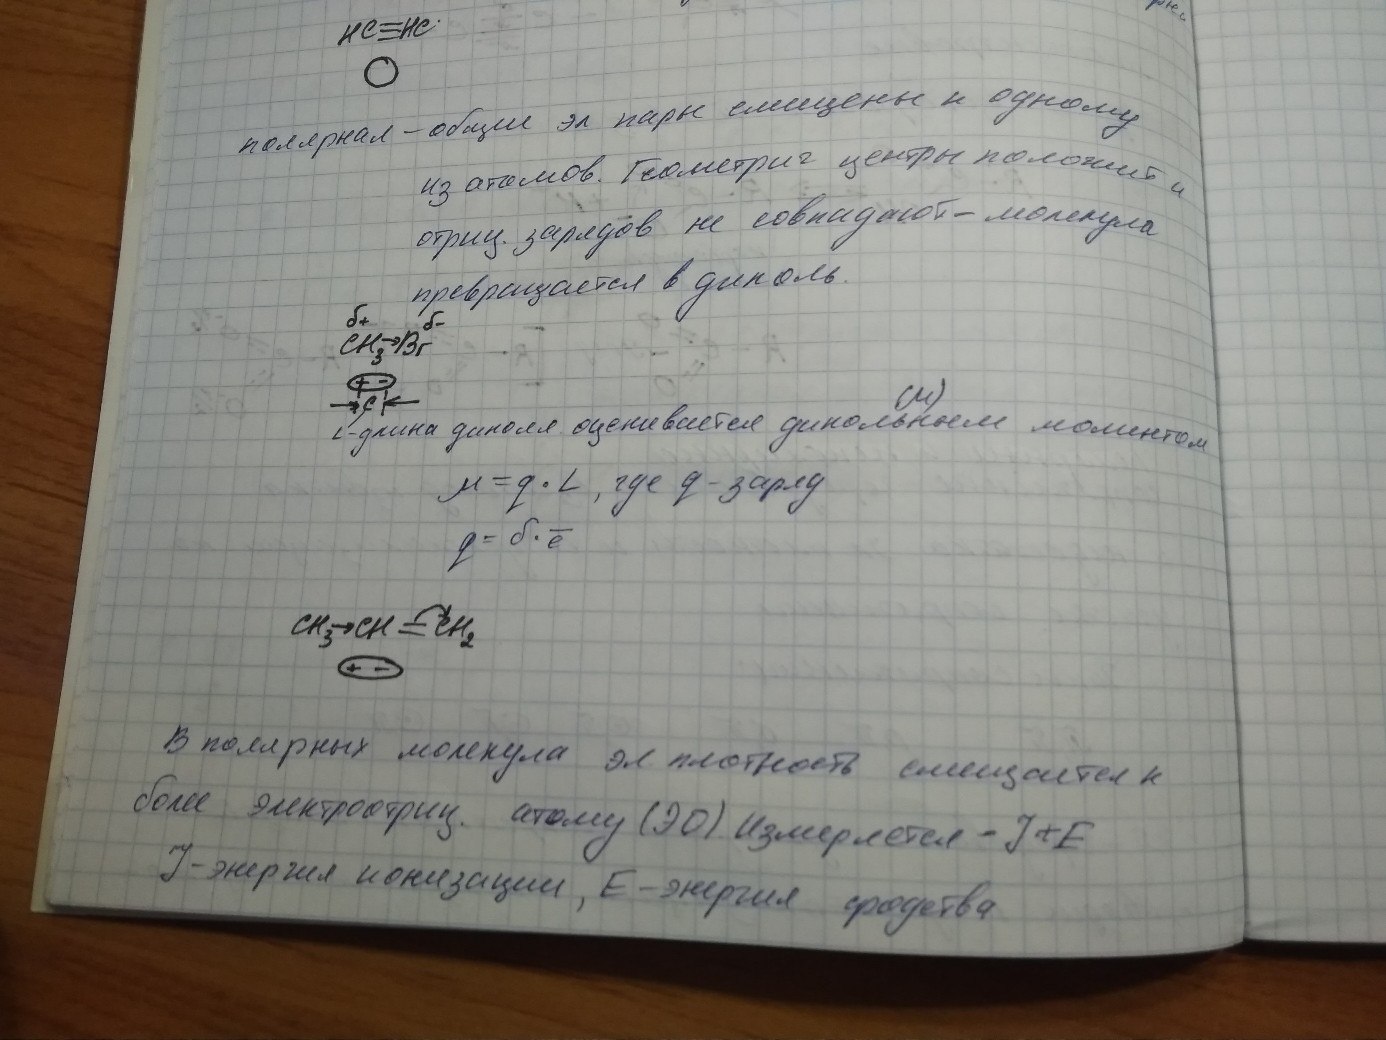 HC≡HC
полярная – общие эл пары смещены к одному
из атомов. Геометрич центры положит и
отриц. зарядов не совпадают – молекула
превращается в диполь.
δ+ δ-
CH3→Br
+ -
L-длина диполя оценивается дипольным моментом (μ)
μ = q · L, где q - заряд
q = δ · ē
CH3→CH=CH2
+ -
В полярных молекула эл плотность смещается к
более электроотриц. атому (ЭО) Измеряется - J+E
J-энергия ионизации, E-энергия сродства